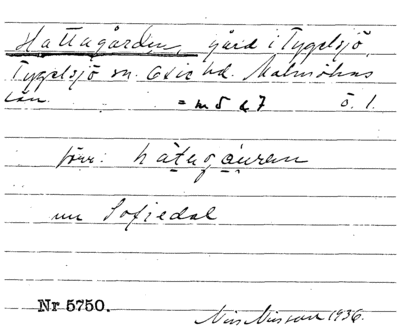 Hattagården, gård i Tygelsjö,
Tygelsjö sn. Oxie hd. Malmöhus
län. = m 5 a 7 ö. l.
förr: hatagåuren
nu Sofiedal
Nr 5750.
Nils Nilsson 1936.